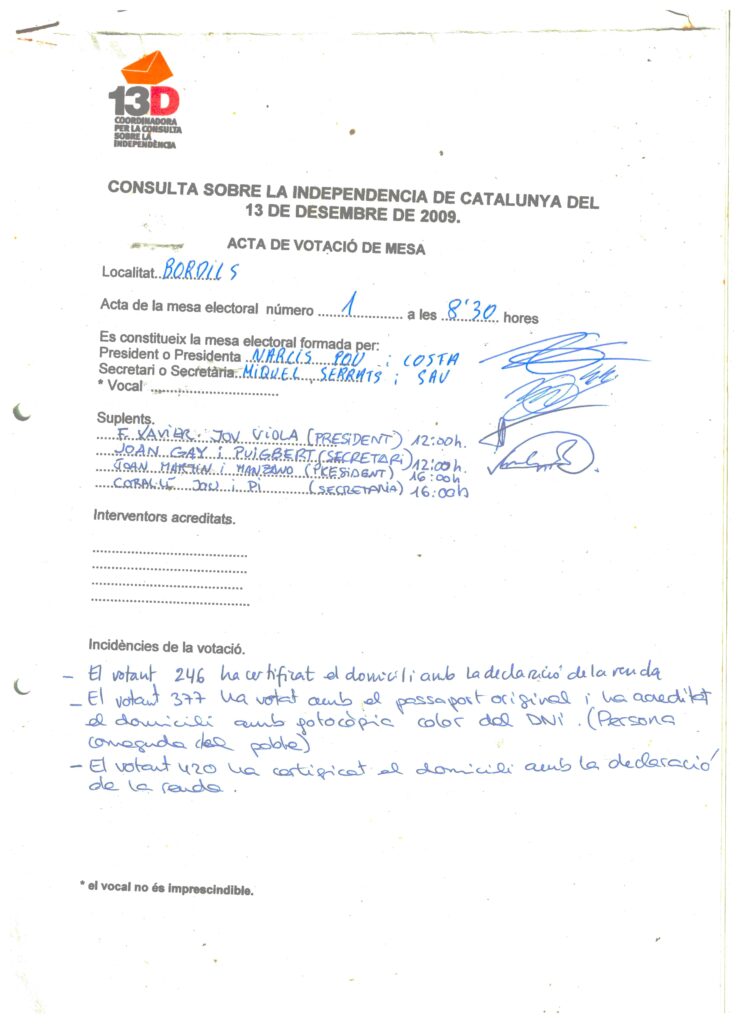 13D
COORDINADORA
PER LA CONSULTA
SOBRE LA
INDEPENDÈNCIA
CONSULTA SOBRE LA INDEPENDENCIA DE CATALUNYA DEL
13 DE DESEMBRE DE 2009.
ACTA DE VOTACIÓ DE MESA
Localitat..BORDILS
Acta de la mesa electoral número ........1............ a les ..8'30.. hores
Es constitueix la mesa electoral formada per:
President o Presidenta ..NARCÍS POU i COSTA
Secretari o Secretària..MIQUEL SERRATS i SAU
* Vocal ................................
Suplents.
F. XAVIER JOU VIOLA (PRESIDENT) 12:00h.
JOAN GAY i PUIGBERT (SECRETARI) 12:00h.
JOAN MARTIN i MANZANO (PRESIDENT) 16:00h
CORALLÍ JOU i PI (SECRETARIA) 16:00h
Interventors acreditats.
.......................................
.......................................
.......................................
.......................................
Incidències de la votació.
- El votant 246 ha certificat el domicili amb la declaració de la renda
- El votant 377 ha votat amb el passaport original i ha acreditat
el domicili amb fotocòpia color del DNI. (Persona
coneguda del poble)
- El votant 420 ha certificat el domicili amb la declaració
de la renda.
* el vocal no és imprescindible.